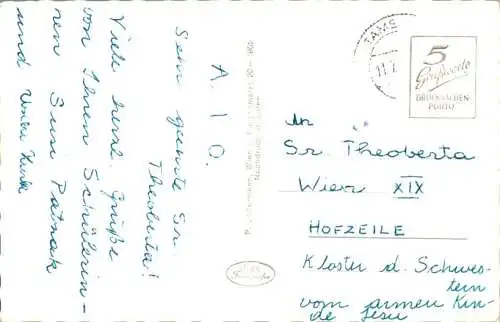 A. I. O.
Sehr geehrte Sr.
Theoberta!
Viele herzl. Grüße
von Ihren Schülerin-
nen Susi Patzak
und
TAMS
5
Grußworte
DRUCKSACHEN-
PORTO
An
Sr. Theoberta
Wien XIX
HOFZEILE
Kloster d. Schwes-
tern
vom armen Kin-
de Jesu